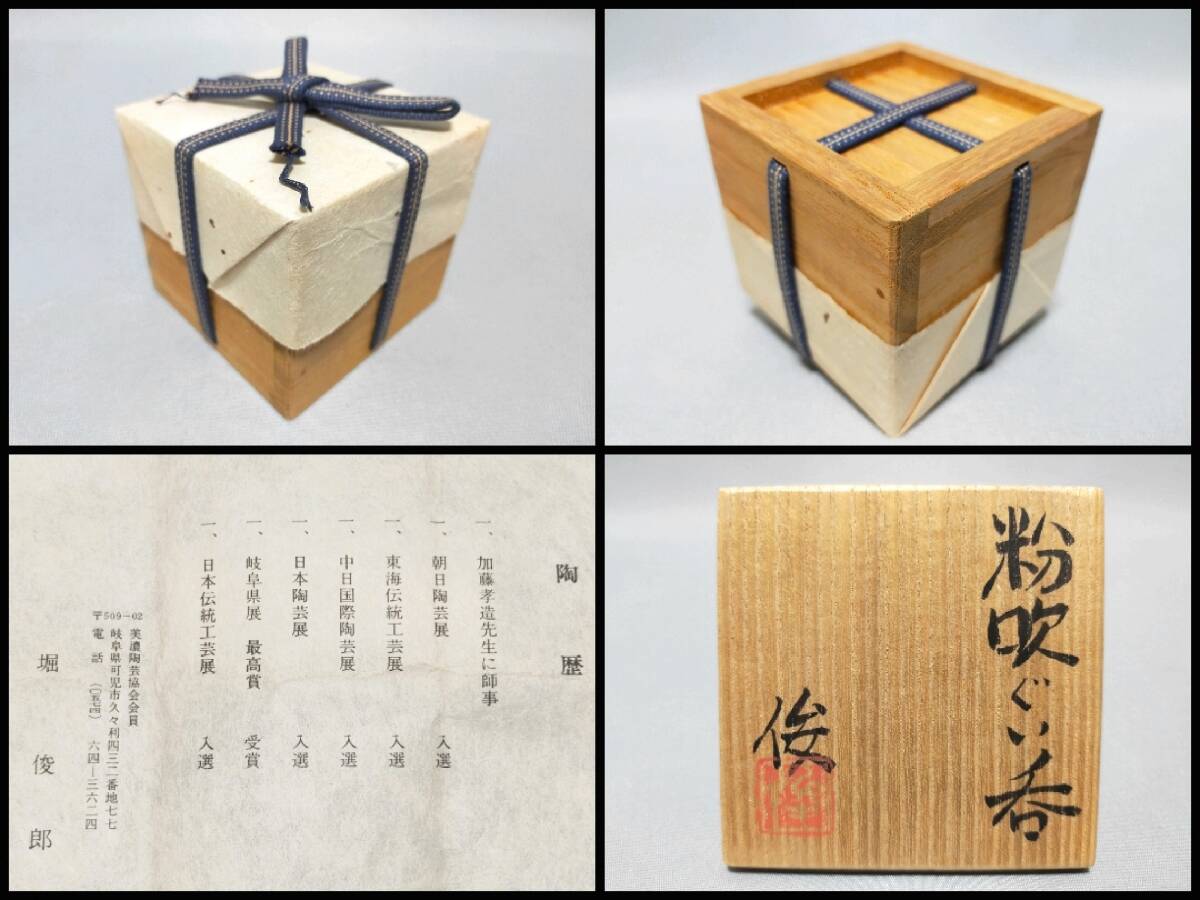 陶歴
一、加藤孝造先生に師事
一、朝日陶芸展 入選
一、東海伝統工芸展 入選
一、中日国際陶芸展 入選
一、日本陶芸展 入選
一、岐阜県展 最高賞 受賞
一、日本伝統工芸展 入選
美濃陶芸協会会員
〒509-02 岐阜県可児市久々利四三二番地七七
電話 (〇五七四) 六四―三六二四
堀俊郎
粉吹ぐい呑
俊